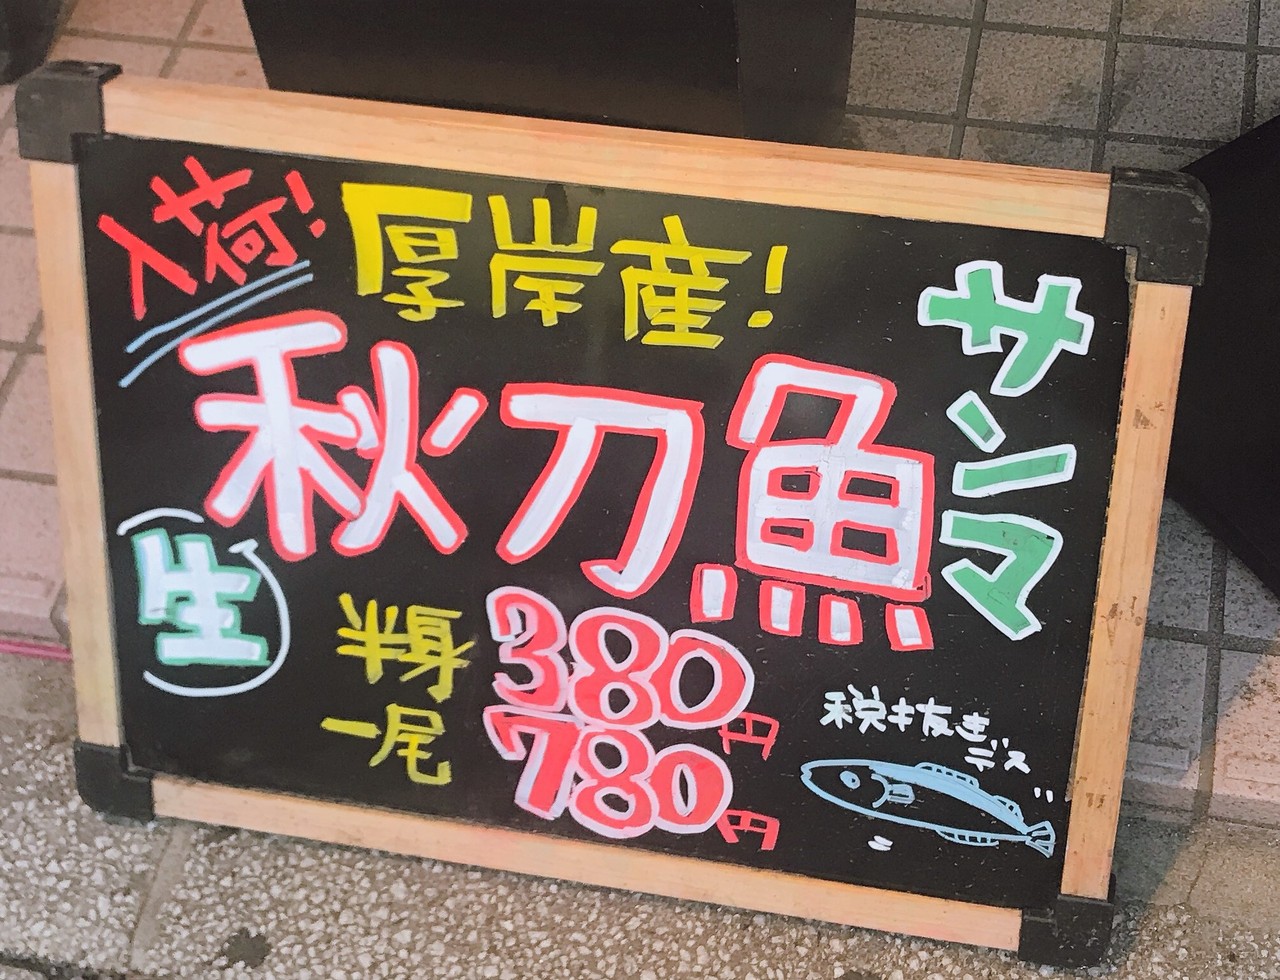 入荷!
厚岸産!
秋刀魚
サンマ
生
半身 380円
一尾 780円
税抜きデス